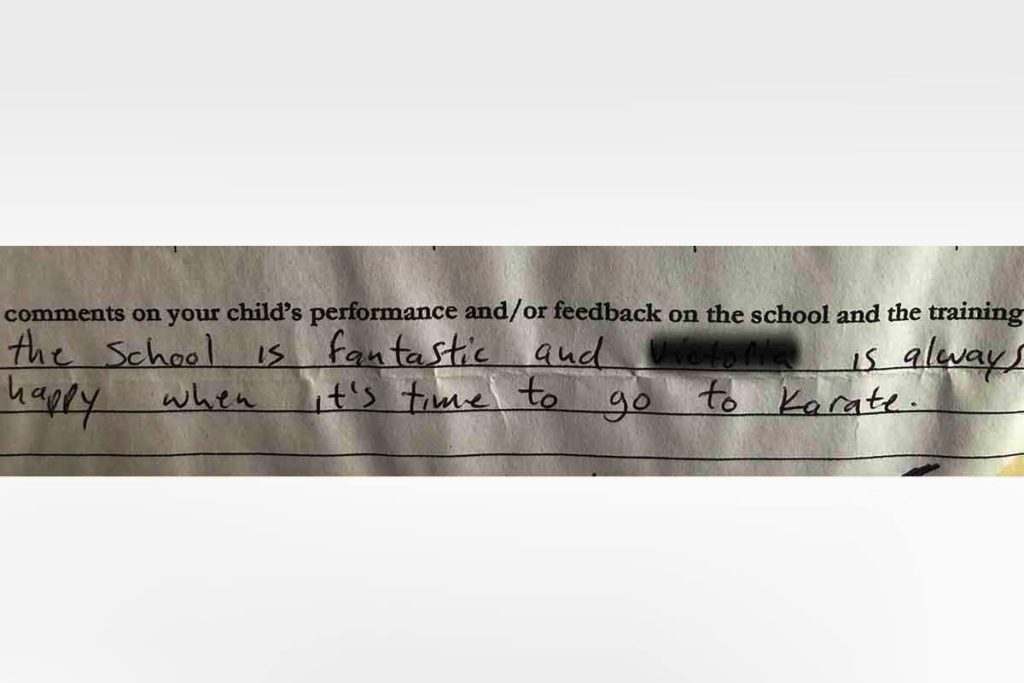 comments on your child's performance and/or feedback on the school and the training
the School is fantastic and is always
happy when it's time to go to Karate.